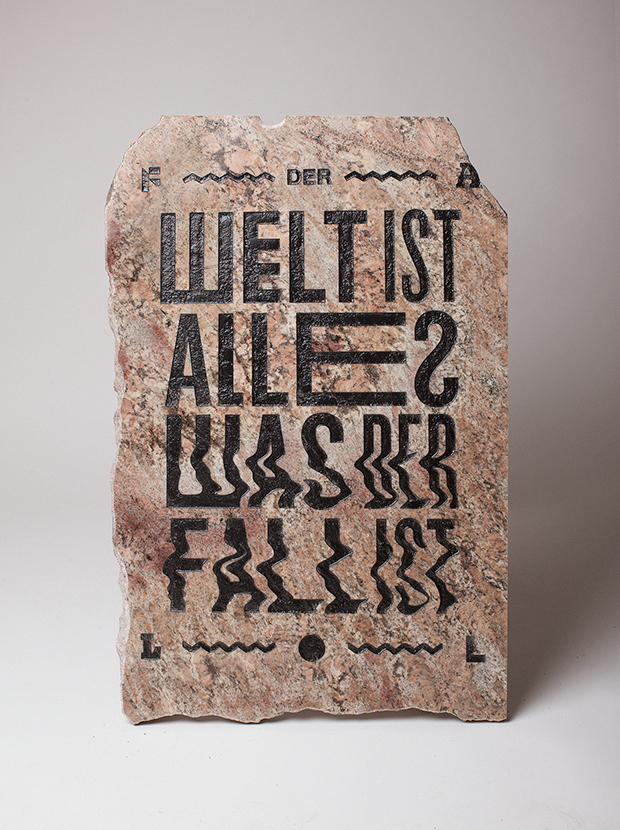 F DER A
WELT IST
ALLES
WAS DER
FALL IST
L L